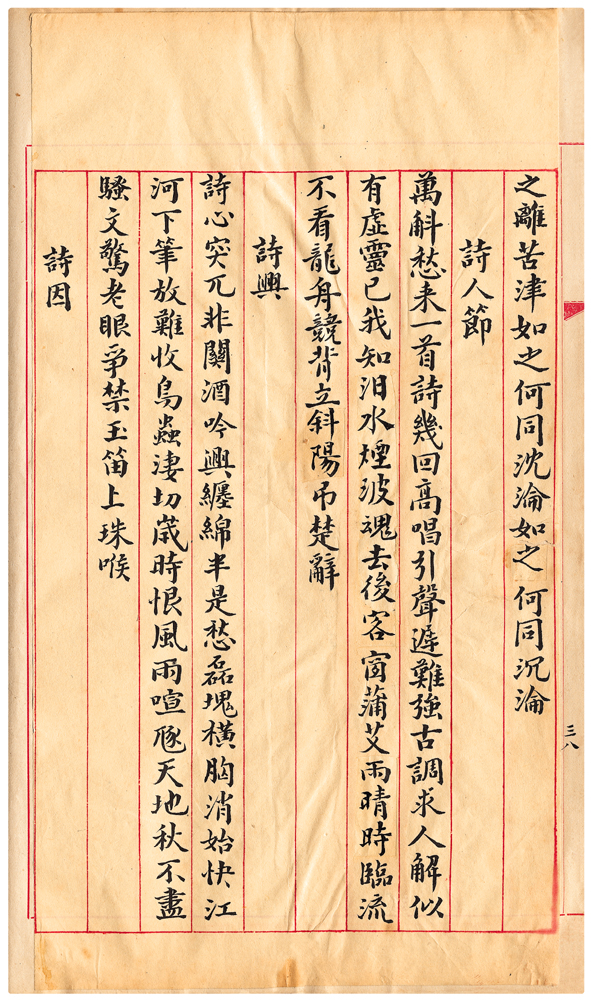 之離苦津如之何同沈淪如之何同沉淪
詩人節
萬斛愁来一首詩幾回高唱引聲遲難強古調求人解似
有虛靈已我知汨水煙波魂去後客窗蒲艾雨晴時臨流
不看龍舟競背立斜陽吊楚辭
詩興
詩心突兀非關酒吟興纏綿半是愁磊塊橫胸消始快江
河下筆放難收鳥蟲淒切歲時恨風雨喧豗天地秋不盡
騷文驚老眼爭禁玉笛上珠喉
詩因
三八